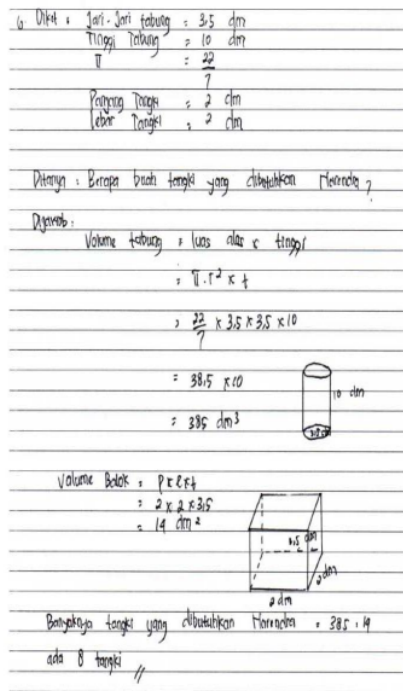 6. Diket : Jari-Jari tabung = 3,5 dm
Tinggi Tabung = 10 dm
π = 22/7
Panjang Tangki = 2 dm
Lebar Tangki = 2 dm
Ditanya : Berapa buah tangki yang dibutuhkan Marendra ?
Dijawab :
Volume tabung = luas alas x tinggi
= π . r² x t
= 22/7 x 3,5 x 3,5 x 10
= 38,5 x 10
10 dm
= 385 dm³
3,5 dm
Volume Balok = p x l x t
= 2 x 2 x 3,5
= 14 dm²
3,5 dm
2 dm
2 dm
Banyaknya tangki yang dibutuhkan Marendra = 385 : 14
ada 8 tangki //